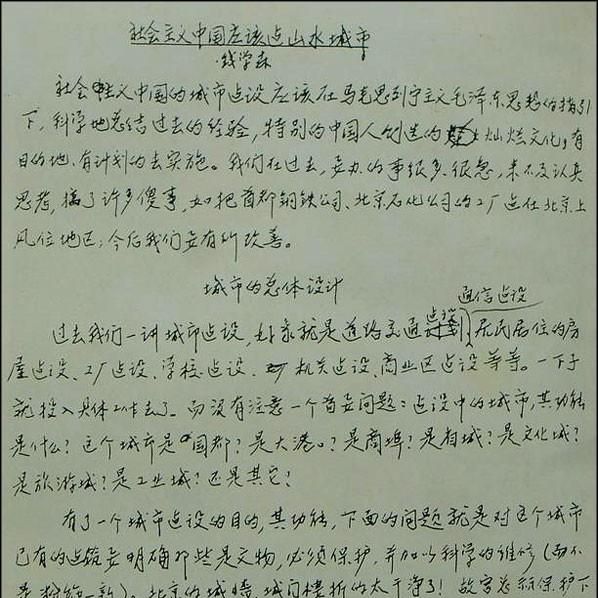 社会主义中国应该造山水城市
钱学森
社会主义中国的城市建设应该在马克思列宁主义毛泽东思想的指引
下,科学地总结过去的经验,特别的中国人创造的灿烂文化,有
目的地、有计划的去实施。我们在过去,要办的事很多、很急,来不及认真
思考,搞了许多傻事,如把首都钢铁公司、北京石化公司的工厂造在北京上
风位地区;今后我们要有所改善。
城市的总体设计
通信建设
过去我们一讲城市建设,好象就是道路交通建设、居民居住的房
屋建设、工厂建设、学校建设、机关建设、商业区建设等等。一下子
就投入具体工作去了。而没有注意一个首要问题:建设中的城市,其功能
是什么?这个城市是国都?是大港?是商埠?是省城?是文化城?
是旅游城?是工业城?还是其它?
有了一个城市建设的目的,其功能,下面的问题就是对这个城市
已有的建筑要明确那些是文物,必须保护,并加以科学的维修(而不
是粉饰一新)。北京的城墙、城门楼拆的太干净了!故宫总算保护下